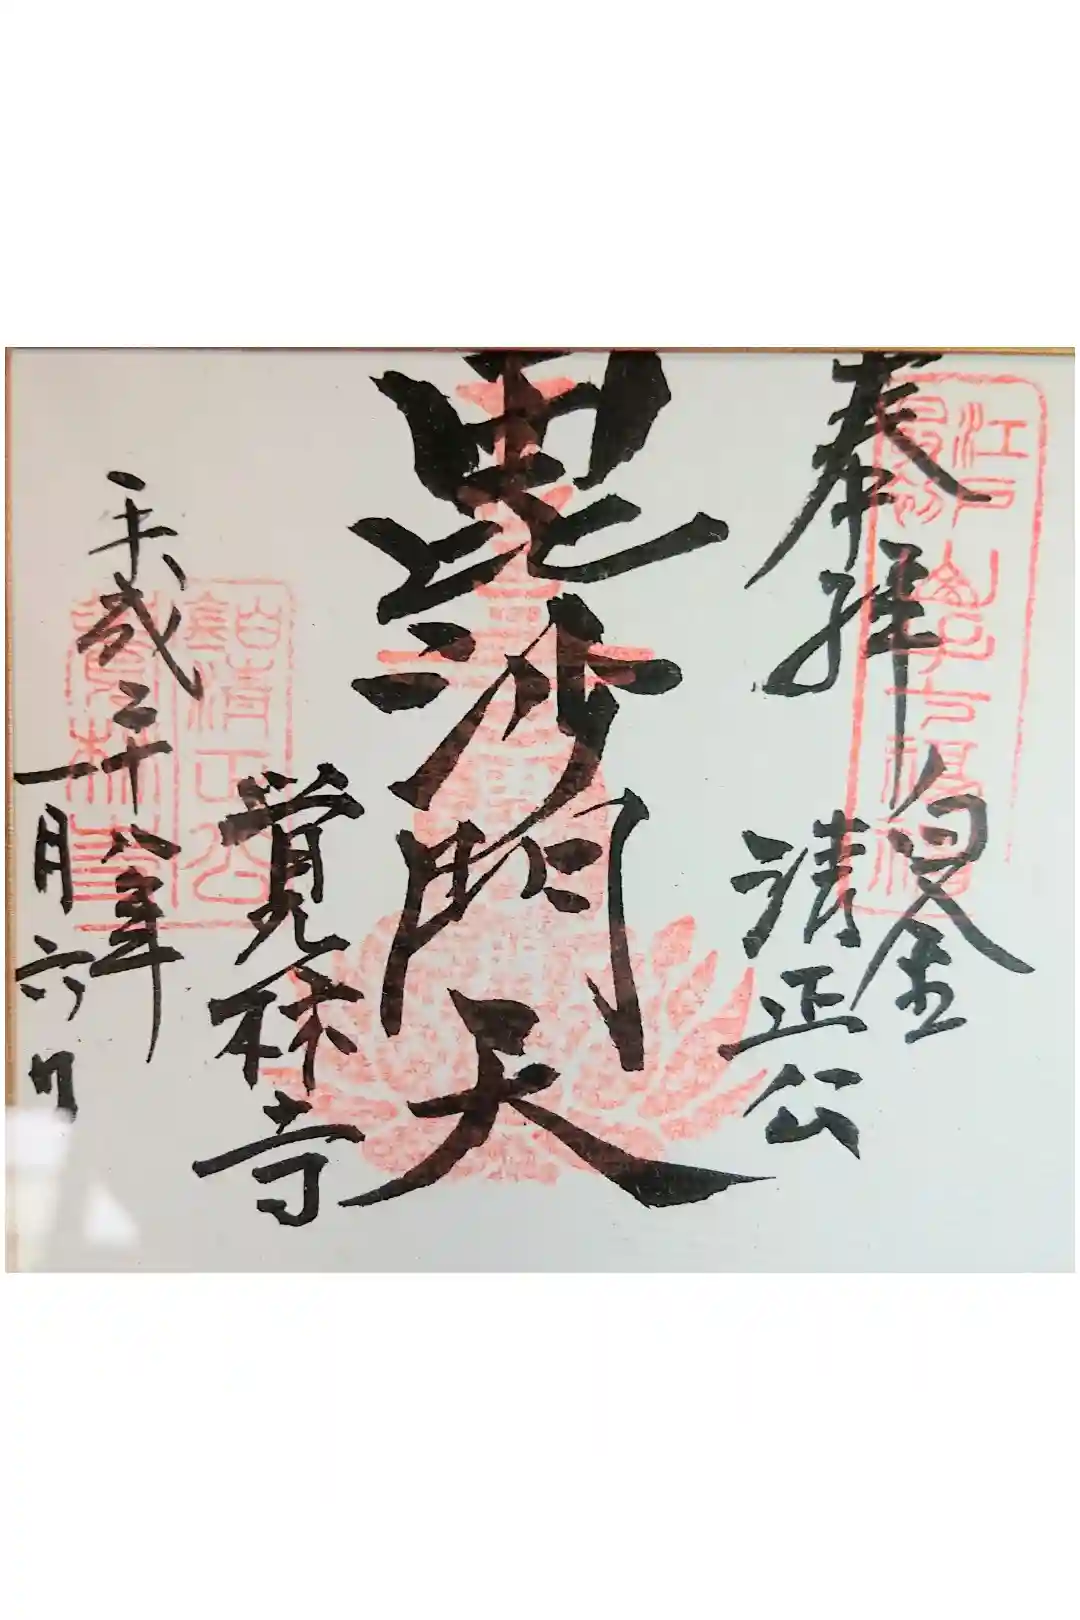 奉拝
白金
清正公
毘沙門天
覚林寺
平成二十八年
一月六日
江戸最初
山手七福神
白金清正公
覚林寺